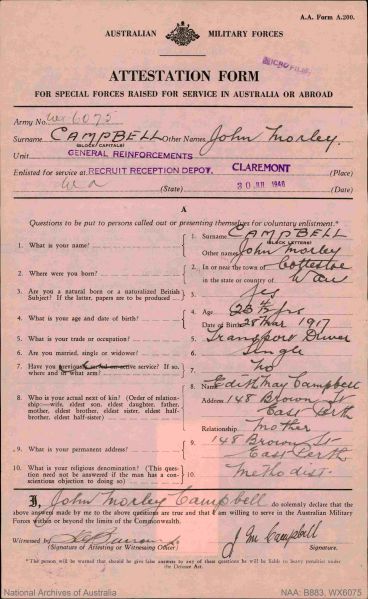 A.A. Form A.200.
AUSTRALIAN MILITARY FORCES
MICROFILM
ATTESTATION FORM
FOR SPECIAL FORCES RAISED FOR SERVICE IN AUSTRALIA OR ABROAD
Army No. WX6075
Surname CAMPBELL Other Names John Morley.
(BLOCK CAPITALS)
Unit GENERAL REINFORCEMENTS
Enlisted for service at RECRUIT RECEPTION DEPOT, CLAREMONT (Place)
W A (State) 30 1940 (Date)
A
Questions to be put to persons called out or presenting themselves for voluntary enlistment.*
1. What is your name? 1. Surname CAMPBELL
(BLOCK LETTERS)
Other names John Morley
2. Where were you born? 2. In or near the town of Cottesloe
in the state or country of W Aus
3. Are you a natural born or a naturalized British Subject? If the latter, papers are to be produced 3. Yes
4. What is your age and date of birth? 4. Age 23 yrs
Date of Birth 28 Mar 1917
5. What is your trade or occupation? 5. Transport Driver
6. Are you married, single or widower? 6. Single
7. Have you previously served on active service? If so, where and in what arm? 7. No
8. Who is your actual next of kin? (Order of relationship:—wife, eldest son, eldest daughter, father, mother, eldest brother, eldest sister, eldest half-brother, eldest half-sister) 8. Name Edith May Campbell
Address 148 Brown St
East Perth
Relationship Mother
9. What is your permanent address? 9. 148 Brown St
East Perth
10. What is your religious denomination? (This question need not be answered if the man has a conscientious objection to doing so) 10. Methodist.
I, John Morley Campbell do solemnly declare that the
above answers made by me to the above questions are true and that I am willing to serve in the Australian Military
Forces within or beyond the limits of the Commonwealth.
Witnessed by J M Campbell
(Signature of Attesting or Witnessing Officer) (Signature of Person Enlisted)
*The person will be warned that should he give false answers to any of these questions he will be liable to heavy penalties under the Defence Act.
National Archives of Australia NAA: B883, WX6075